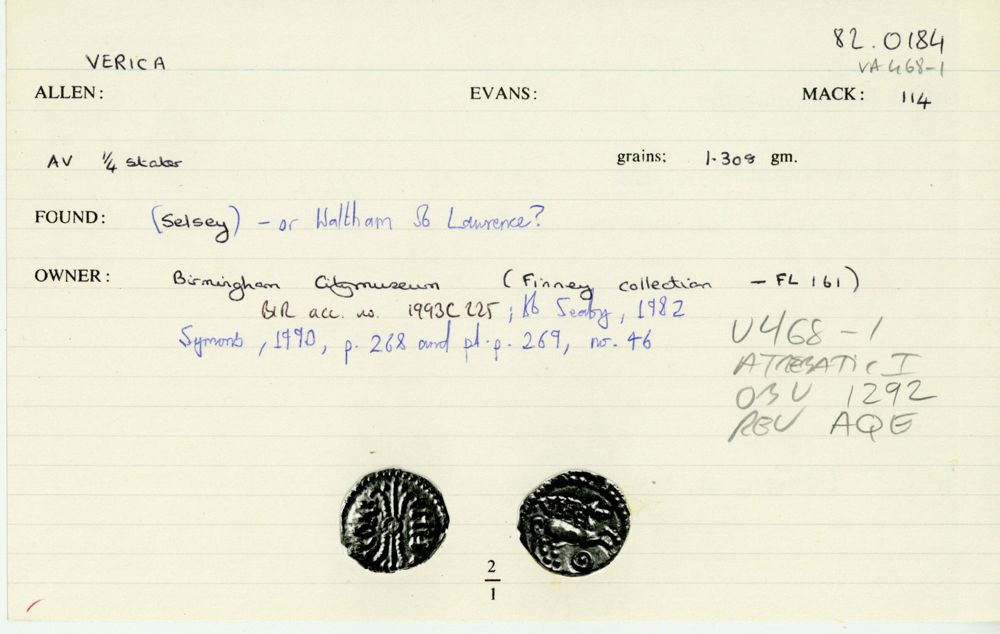 82.0184
VERICA
VA468-1
ALLEN: EVANS: MACK: 114
AV 1/4 stater grains: 1.308 gm.
FOUND: (Selsey) - or Waltham St Lawrence?
OWNER: Birmingham City museum (Finney collection - FL 161)
BIR acc. no. 1993C225; Seaby, 1982
Symons, 1990, p. 268 and pl. p. 269, no. 46
V468-1
ATREBATIC I
OBV 1292
REV AQE
2
1